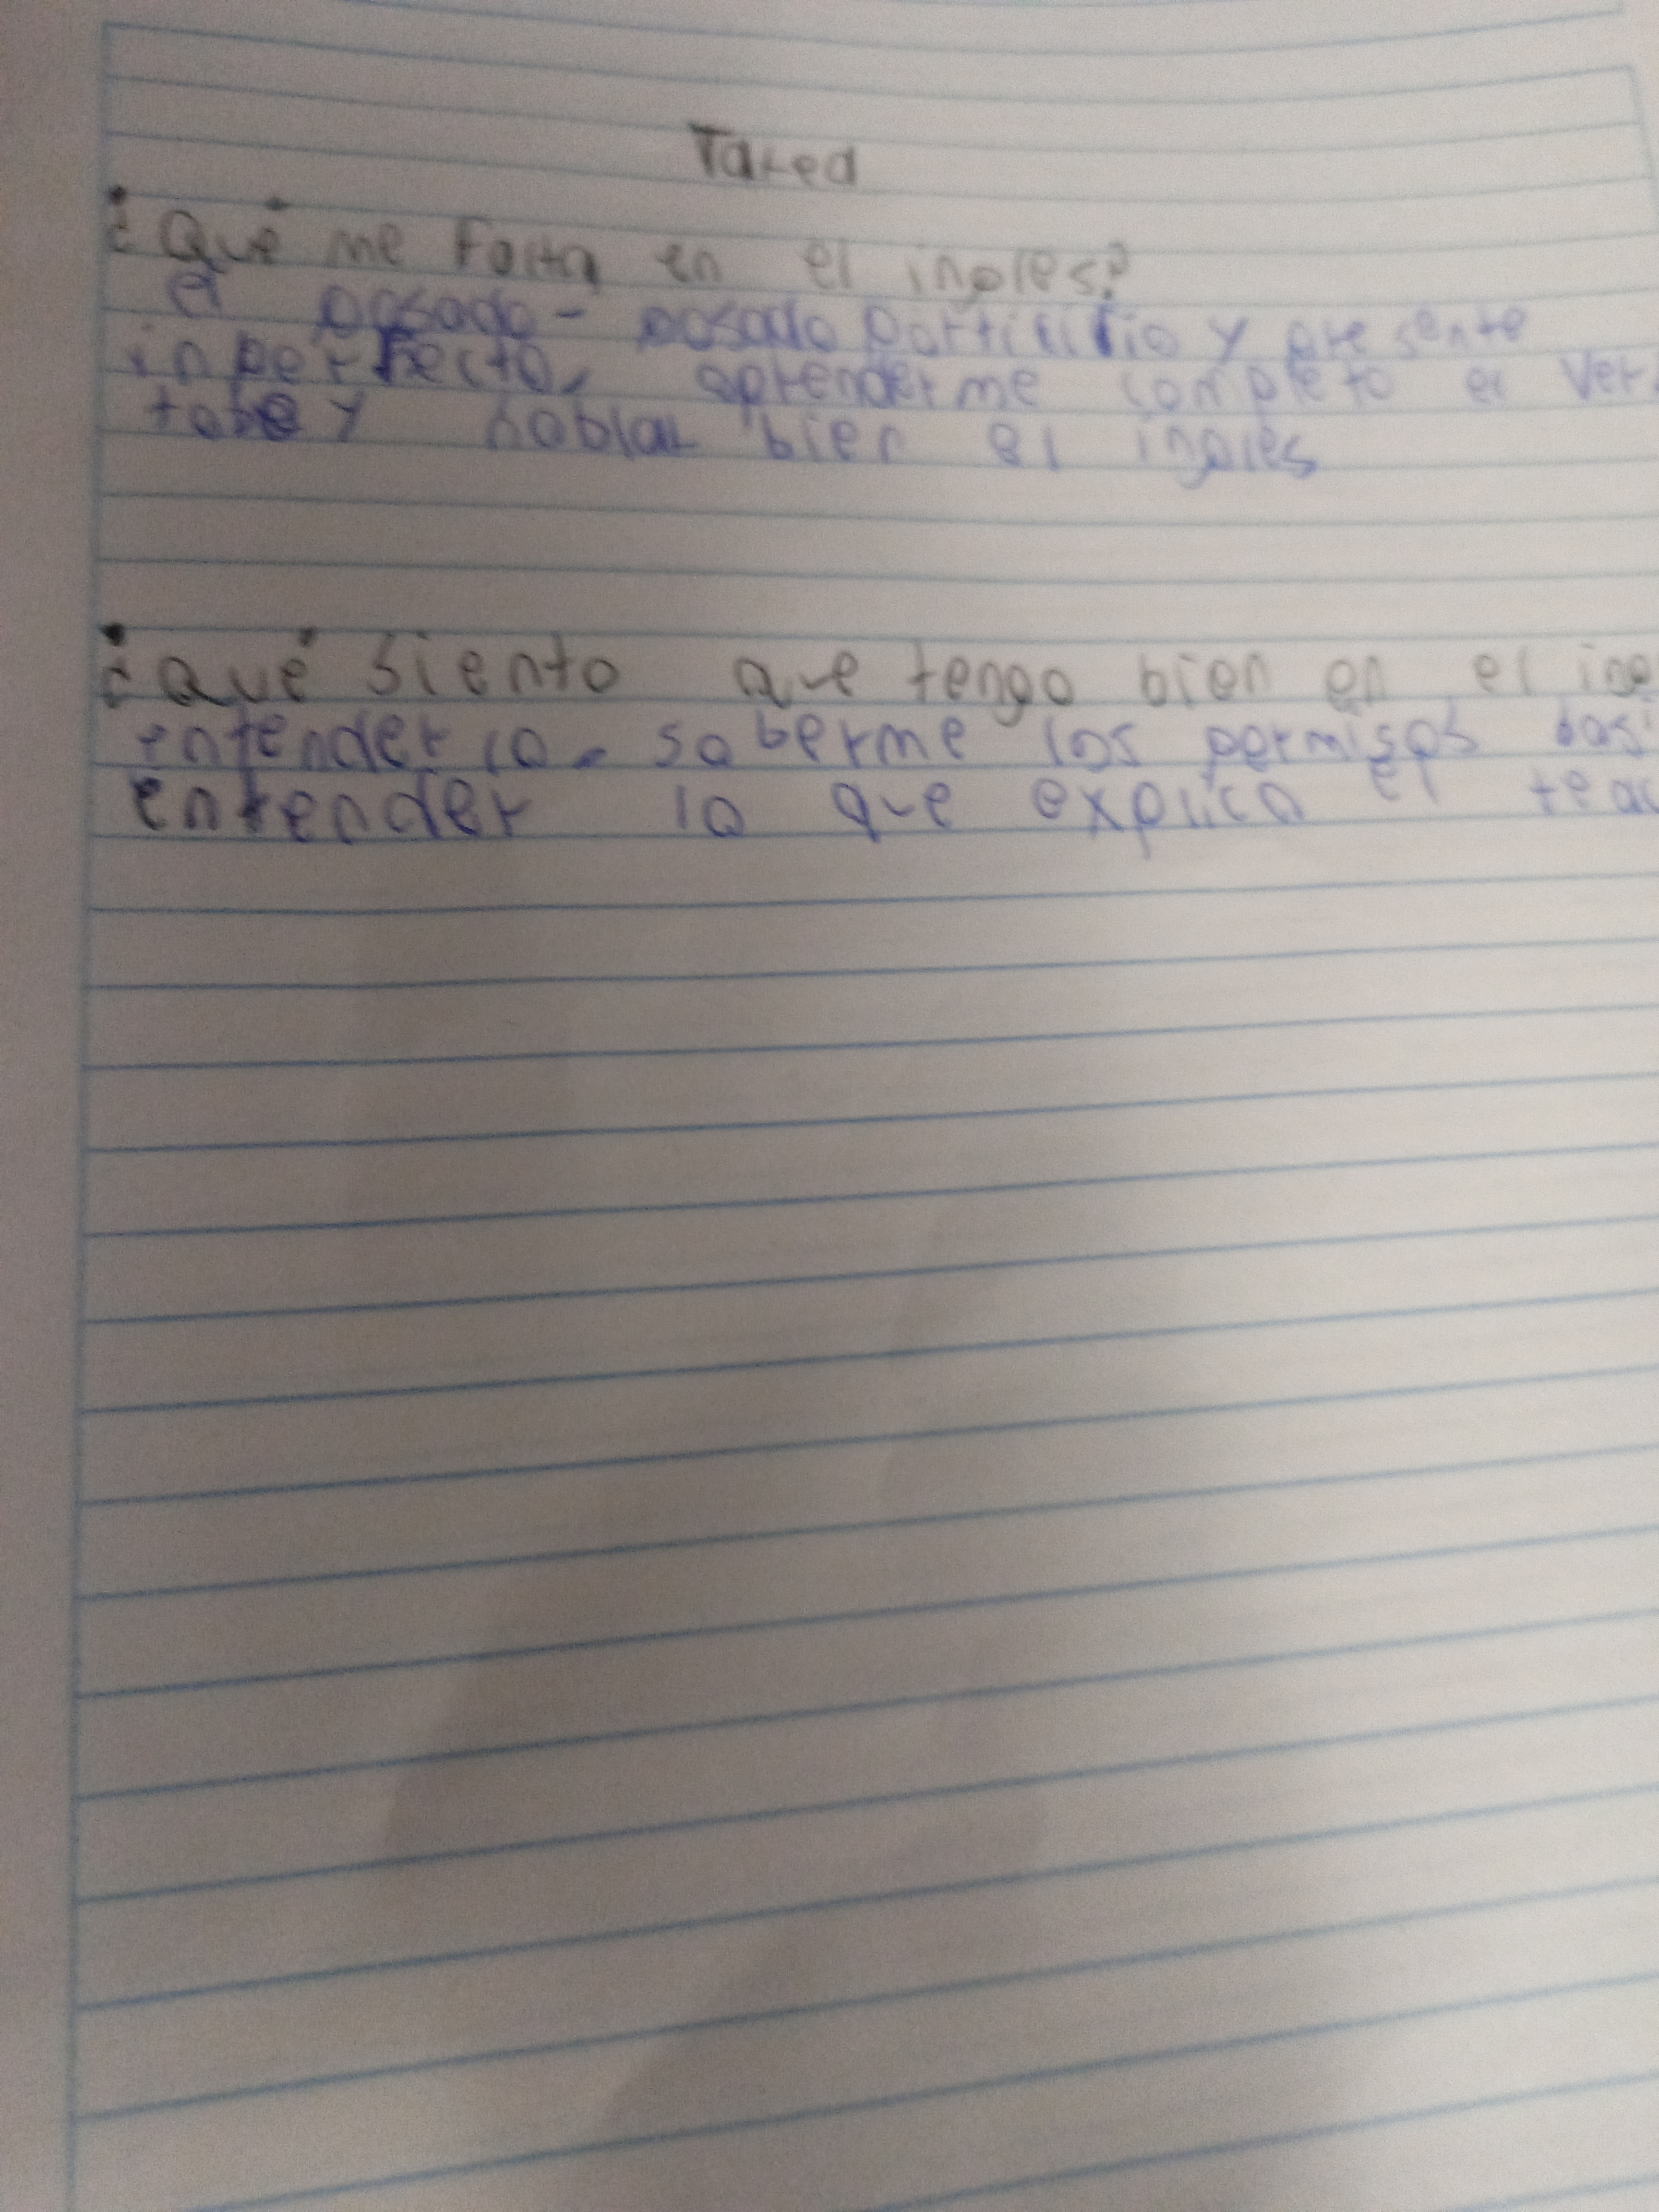 Tared
¿Qué me Falta en el ingles?
el pasado - pasado participio y presente
inperfecto, aprenderme completo el ver
tobe y hablar bien el ingles
¿Qué siento que tengo bien en el ing
entenderlo - saberme los permisos basi
entender lo que explica el teac